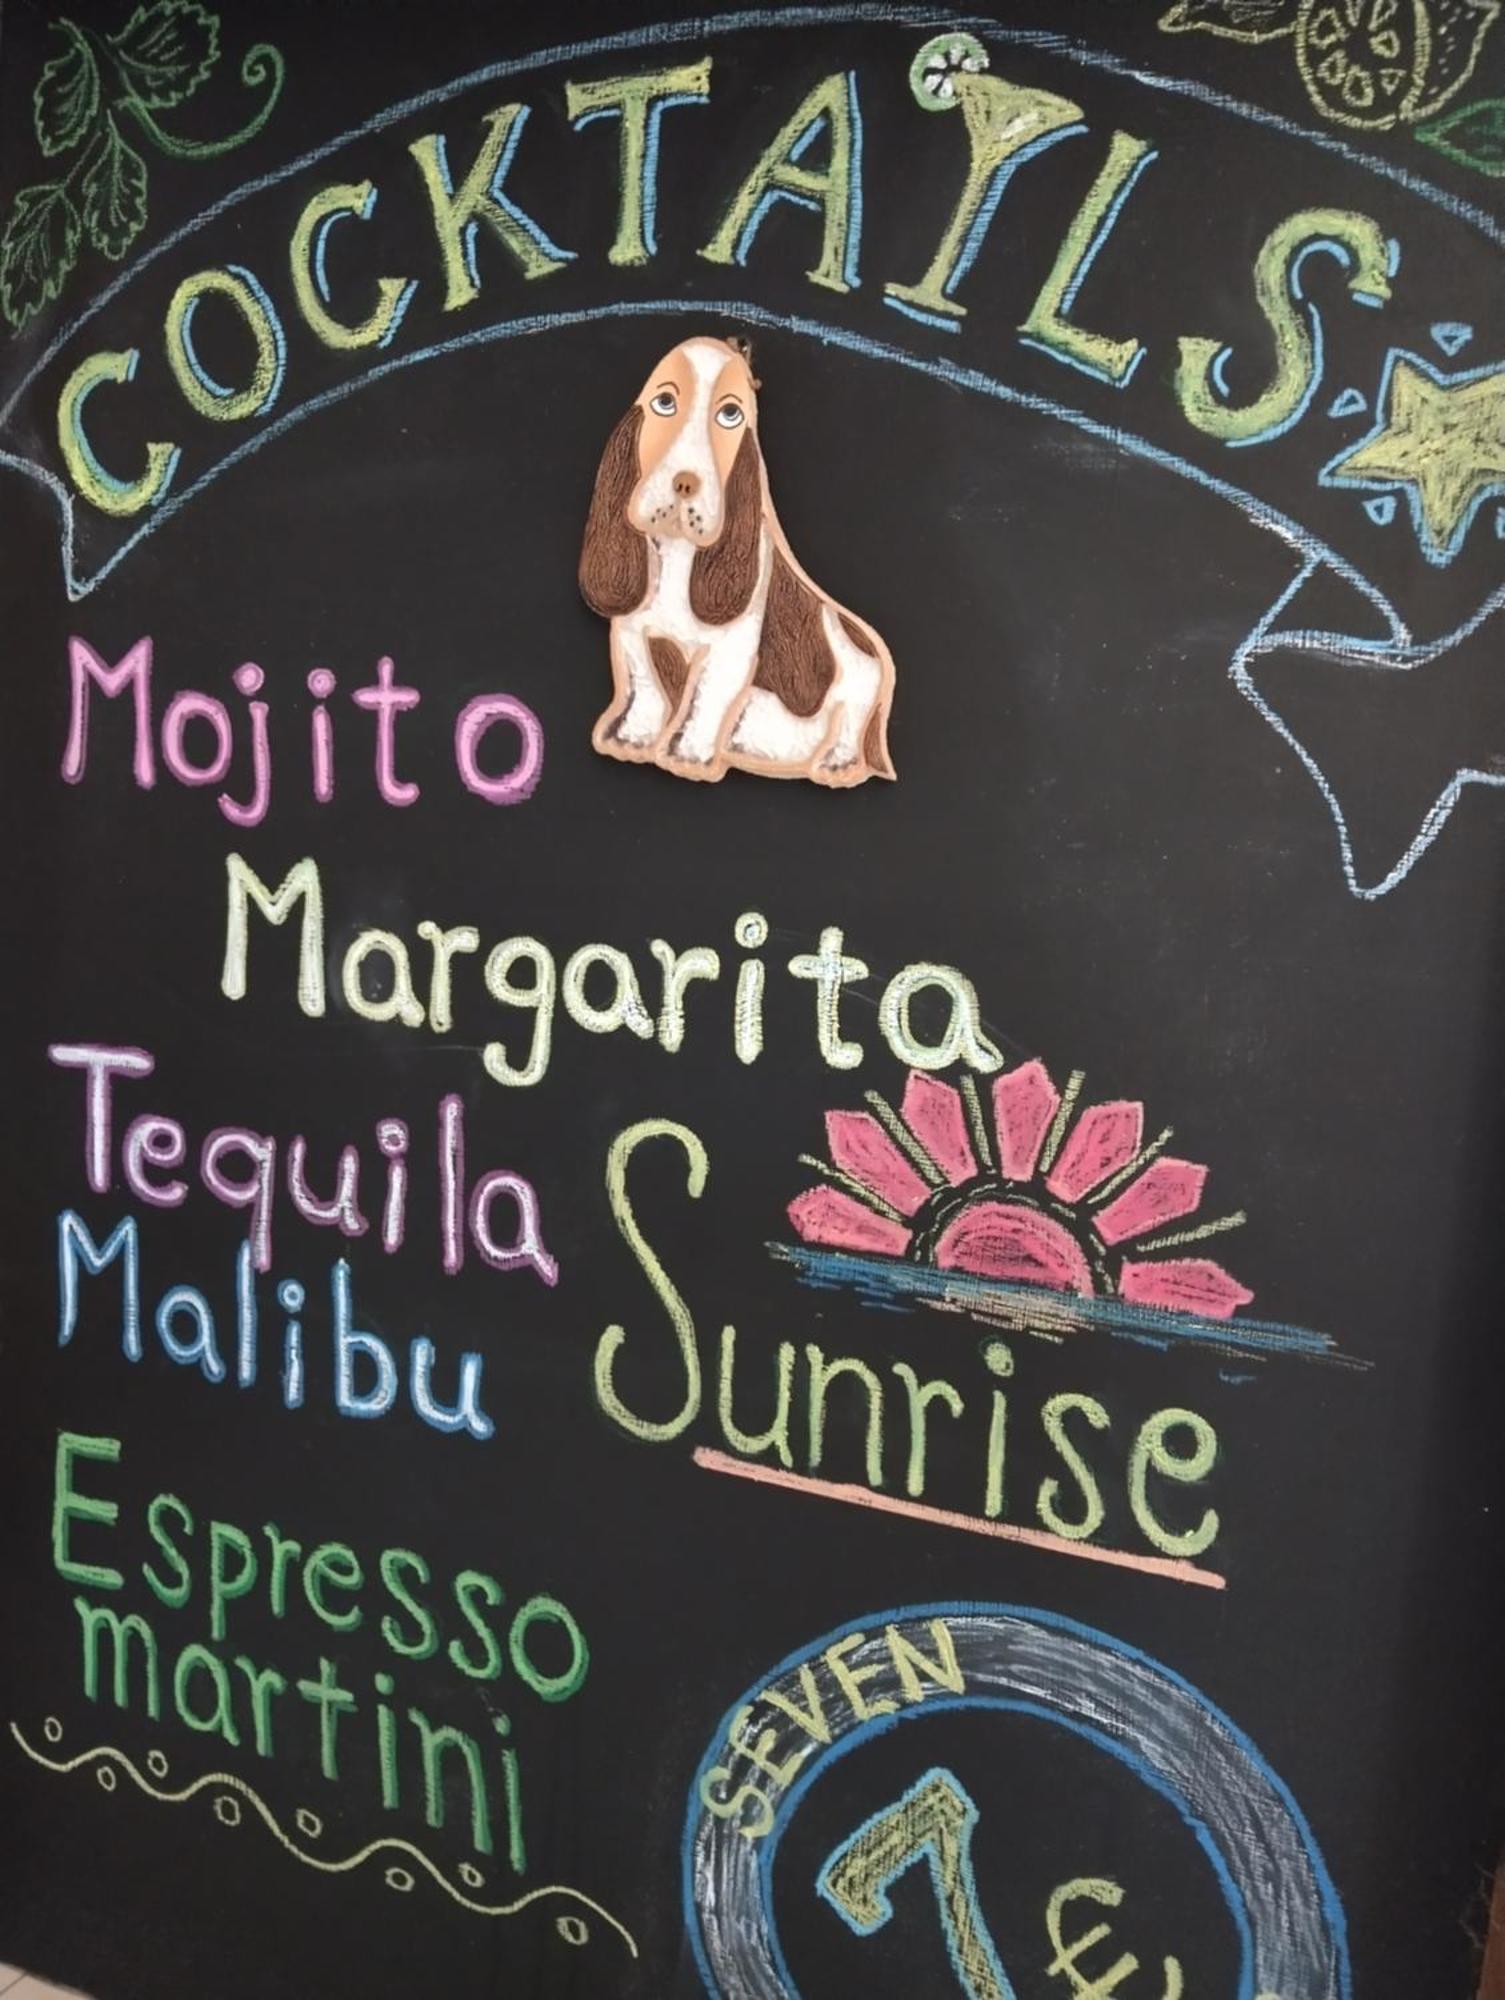 COCKTAILS
Mojito
Margarita
Tequila
Sunrise
Malibu
Espresso
martini
SEVEN
7 €